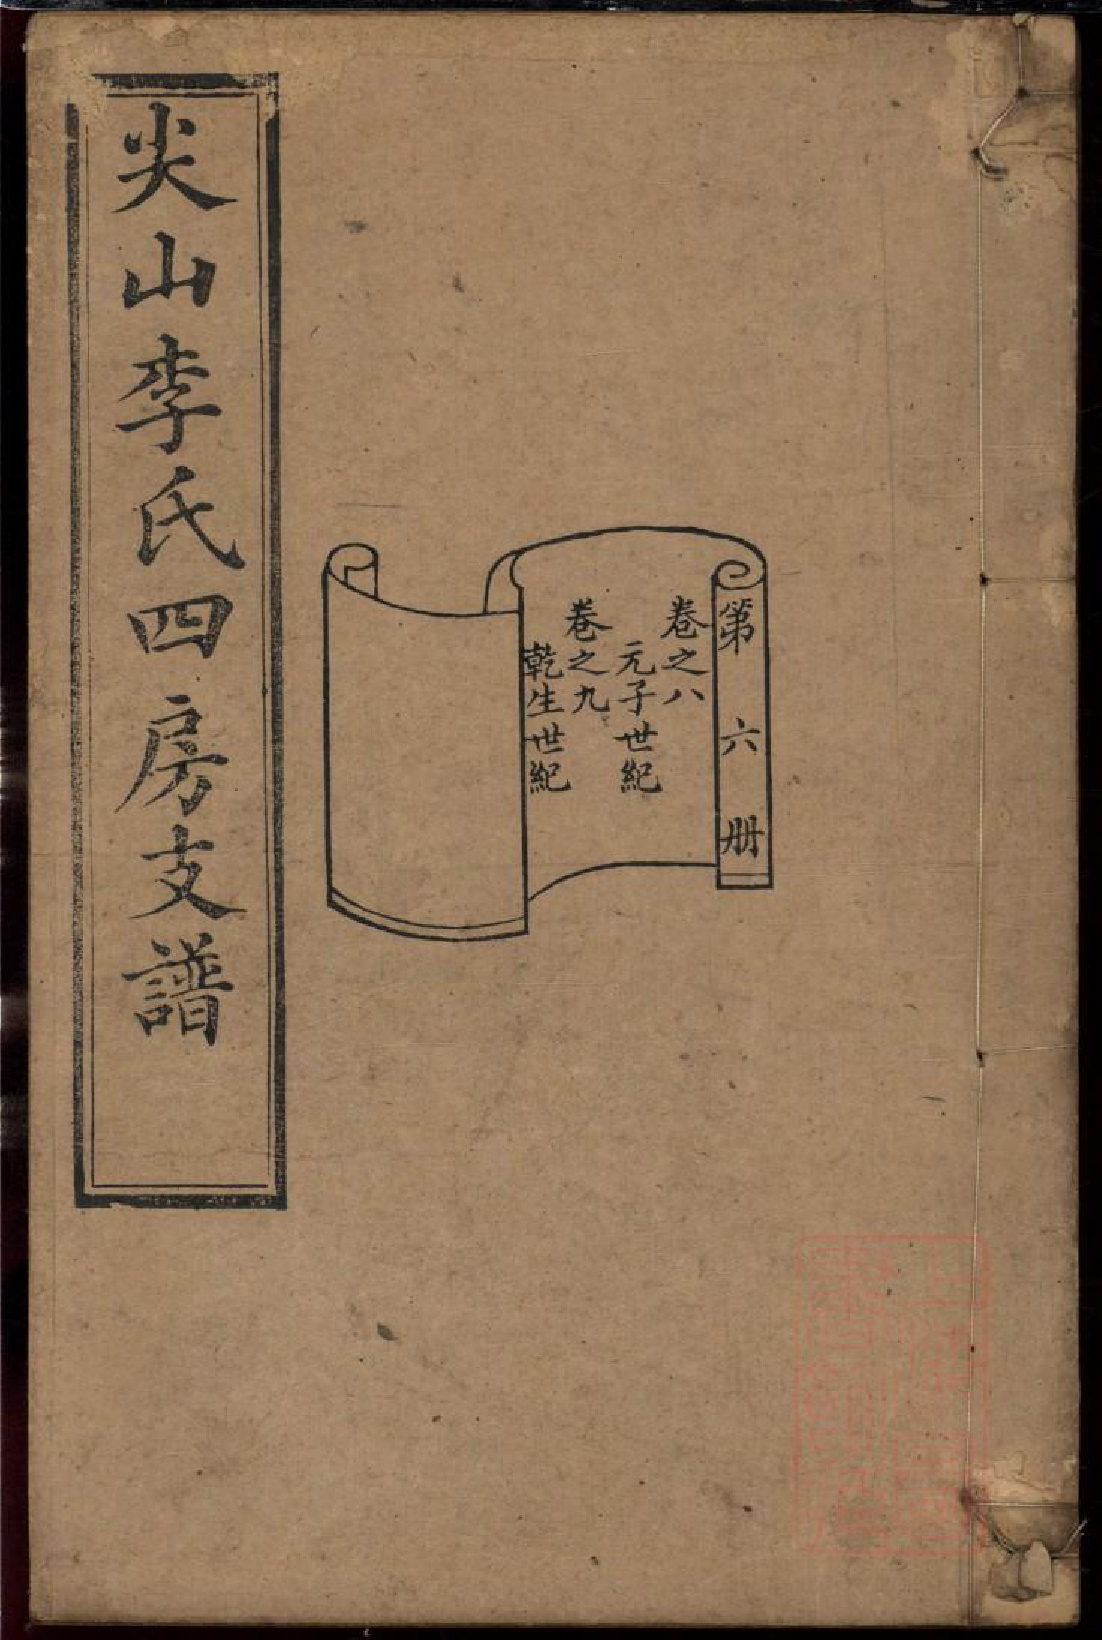 尖山李氏四房支譜
第六册
卷之八
元子世紀
卷之九
乾生世紀